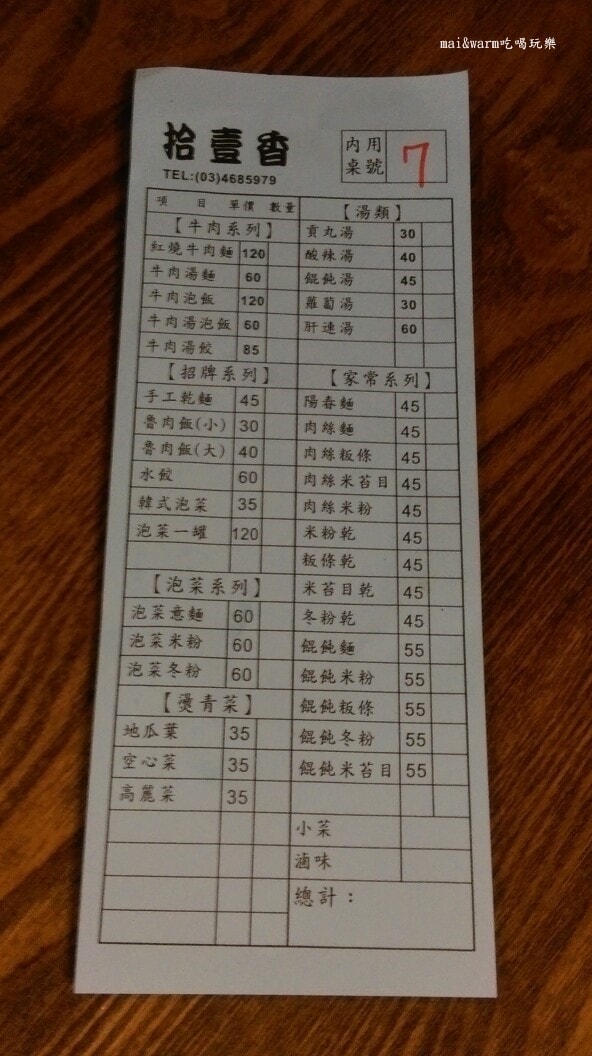 mai&warm吃喝玩樂
拾壹香
TEL:(03)4685979
內用
桌號
7
項 目 單價 數量
【牛肉系列】
紅燒牛肉麵 120
牛肉湯麵 60
牛肉泡飯 120
牛肉湯泡飯 60
牛肉湯餃 85
【招牌系列】
手工乾麵 45
魯肉飯(小) 30
魯肉飯(大) 40
水餃 60
韓式泡菜 35
泡菜一罐 120
【泡菜系列】
泡菜意麵 60
泡菜米粉 60
泡菜冬粉 60
【燙青菜】
地瓜葉 35
空心菜 35
高麗菜 35
【湯類】
貢丸湯 30
酸辣湯 40
餛飩湯 45
蘿蔔湯 30
肝連湯 60
【家常系列】
陽春麵 45
肉絲麵 45
肉絲粄條 45
肉絲米苔目 45
肉絲米粉 45
米粉乾 45
粄條乾 45
米苔目乾 45
冬粉乾 45
餛飩麵 55
餛飩米粉 55
餛飩粄條 55
餛飩冬粉 55
餛飩米苔目 55
小菜
滷味
總計：